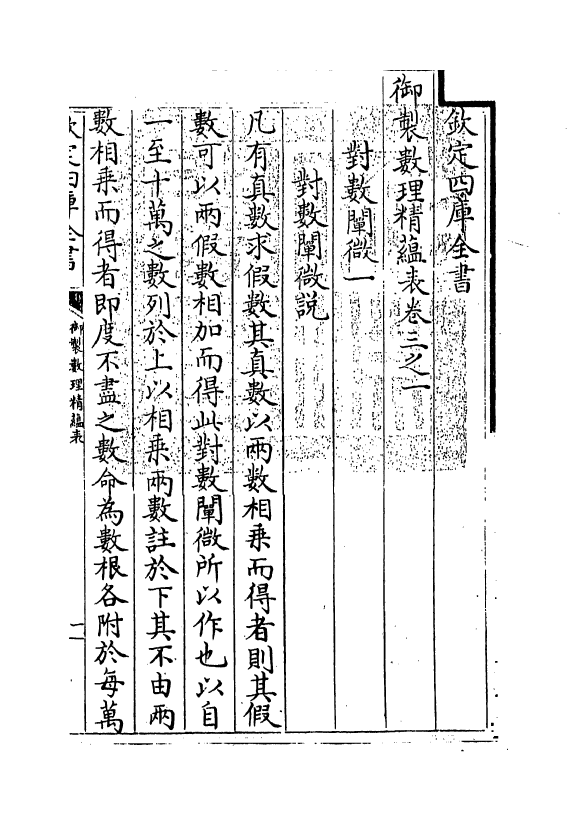 欽定四庫全書
御製數理精蘊表卷三之一
對數闡微一
對數闡微說
凡有真數求假數其真數以兩數相乘而得者則其假
數可以兩假數相加而得此對數闡微所以作也以自
一至十萬之數列於上以相乘兩數註於下其不由兩
數相乘而得者即度不盡之數命為數根各附於每萬
欽定四庫全書
御製數理精蘊表
一